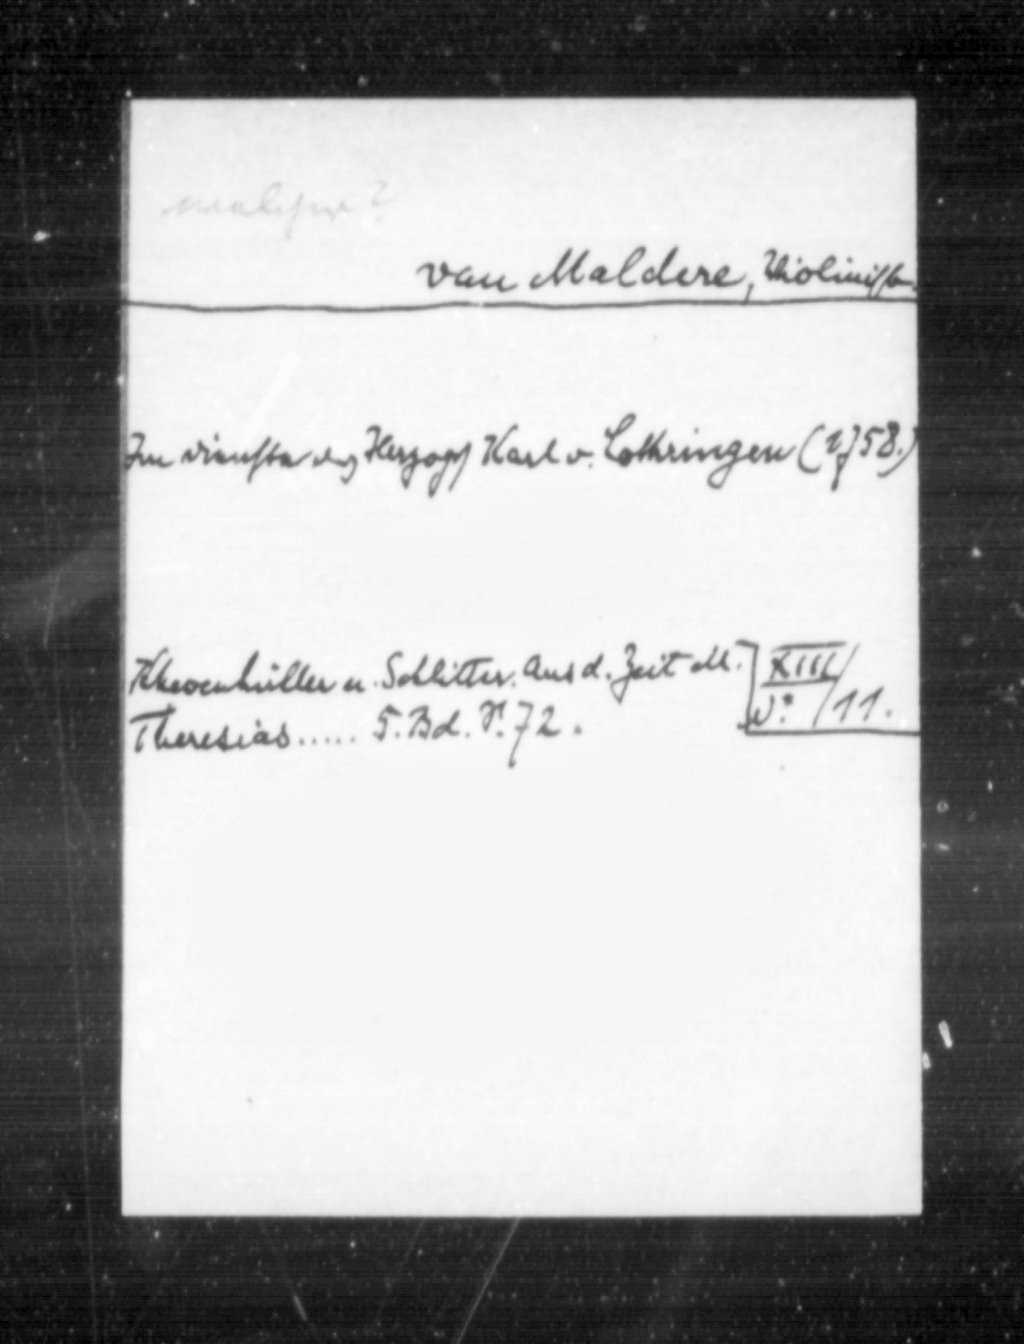 welcher?
van Maldere, Violinist
Im Dienste des Herzogs Karl v. Lothringen (1758.)
Khevenhüller u. Schlitter. Aus d. Zeit M.
Theresias..... 5. Bd. S. 72.
XIII/
v. /11.